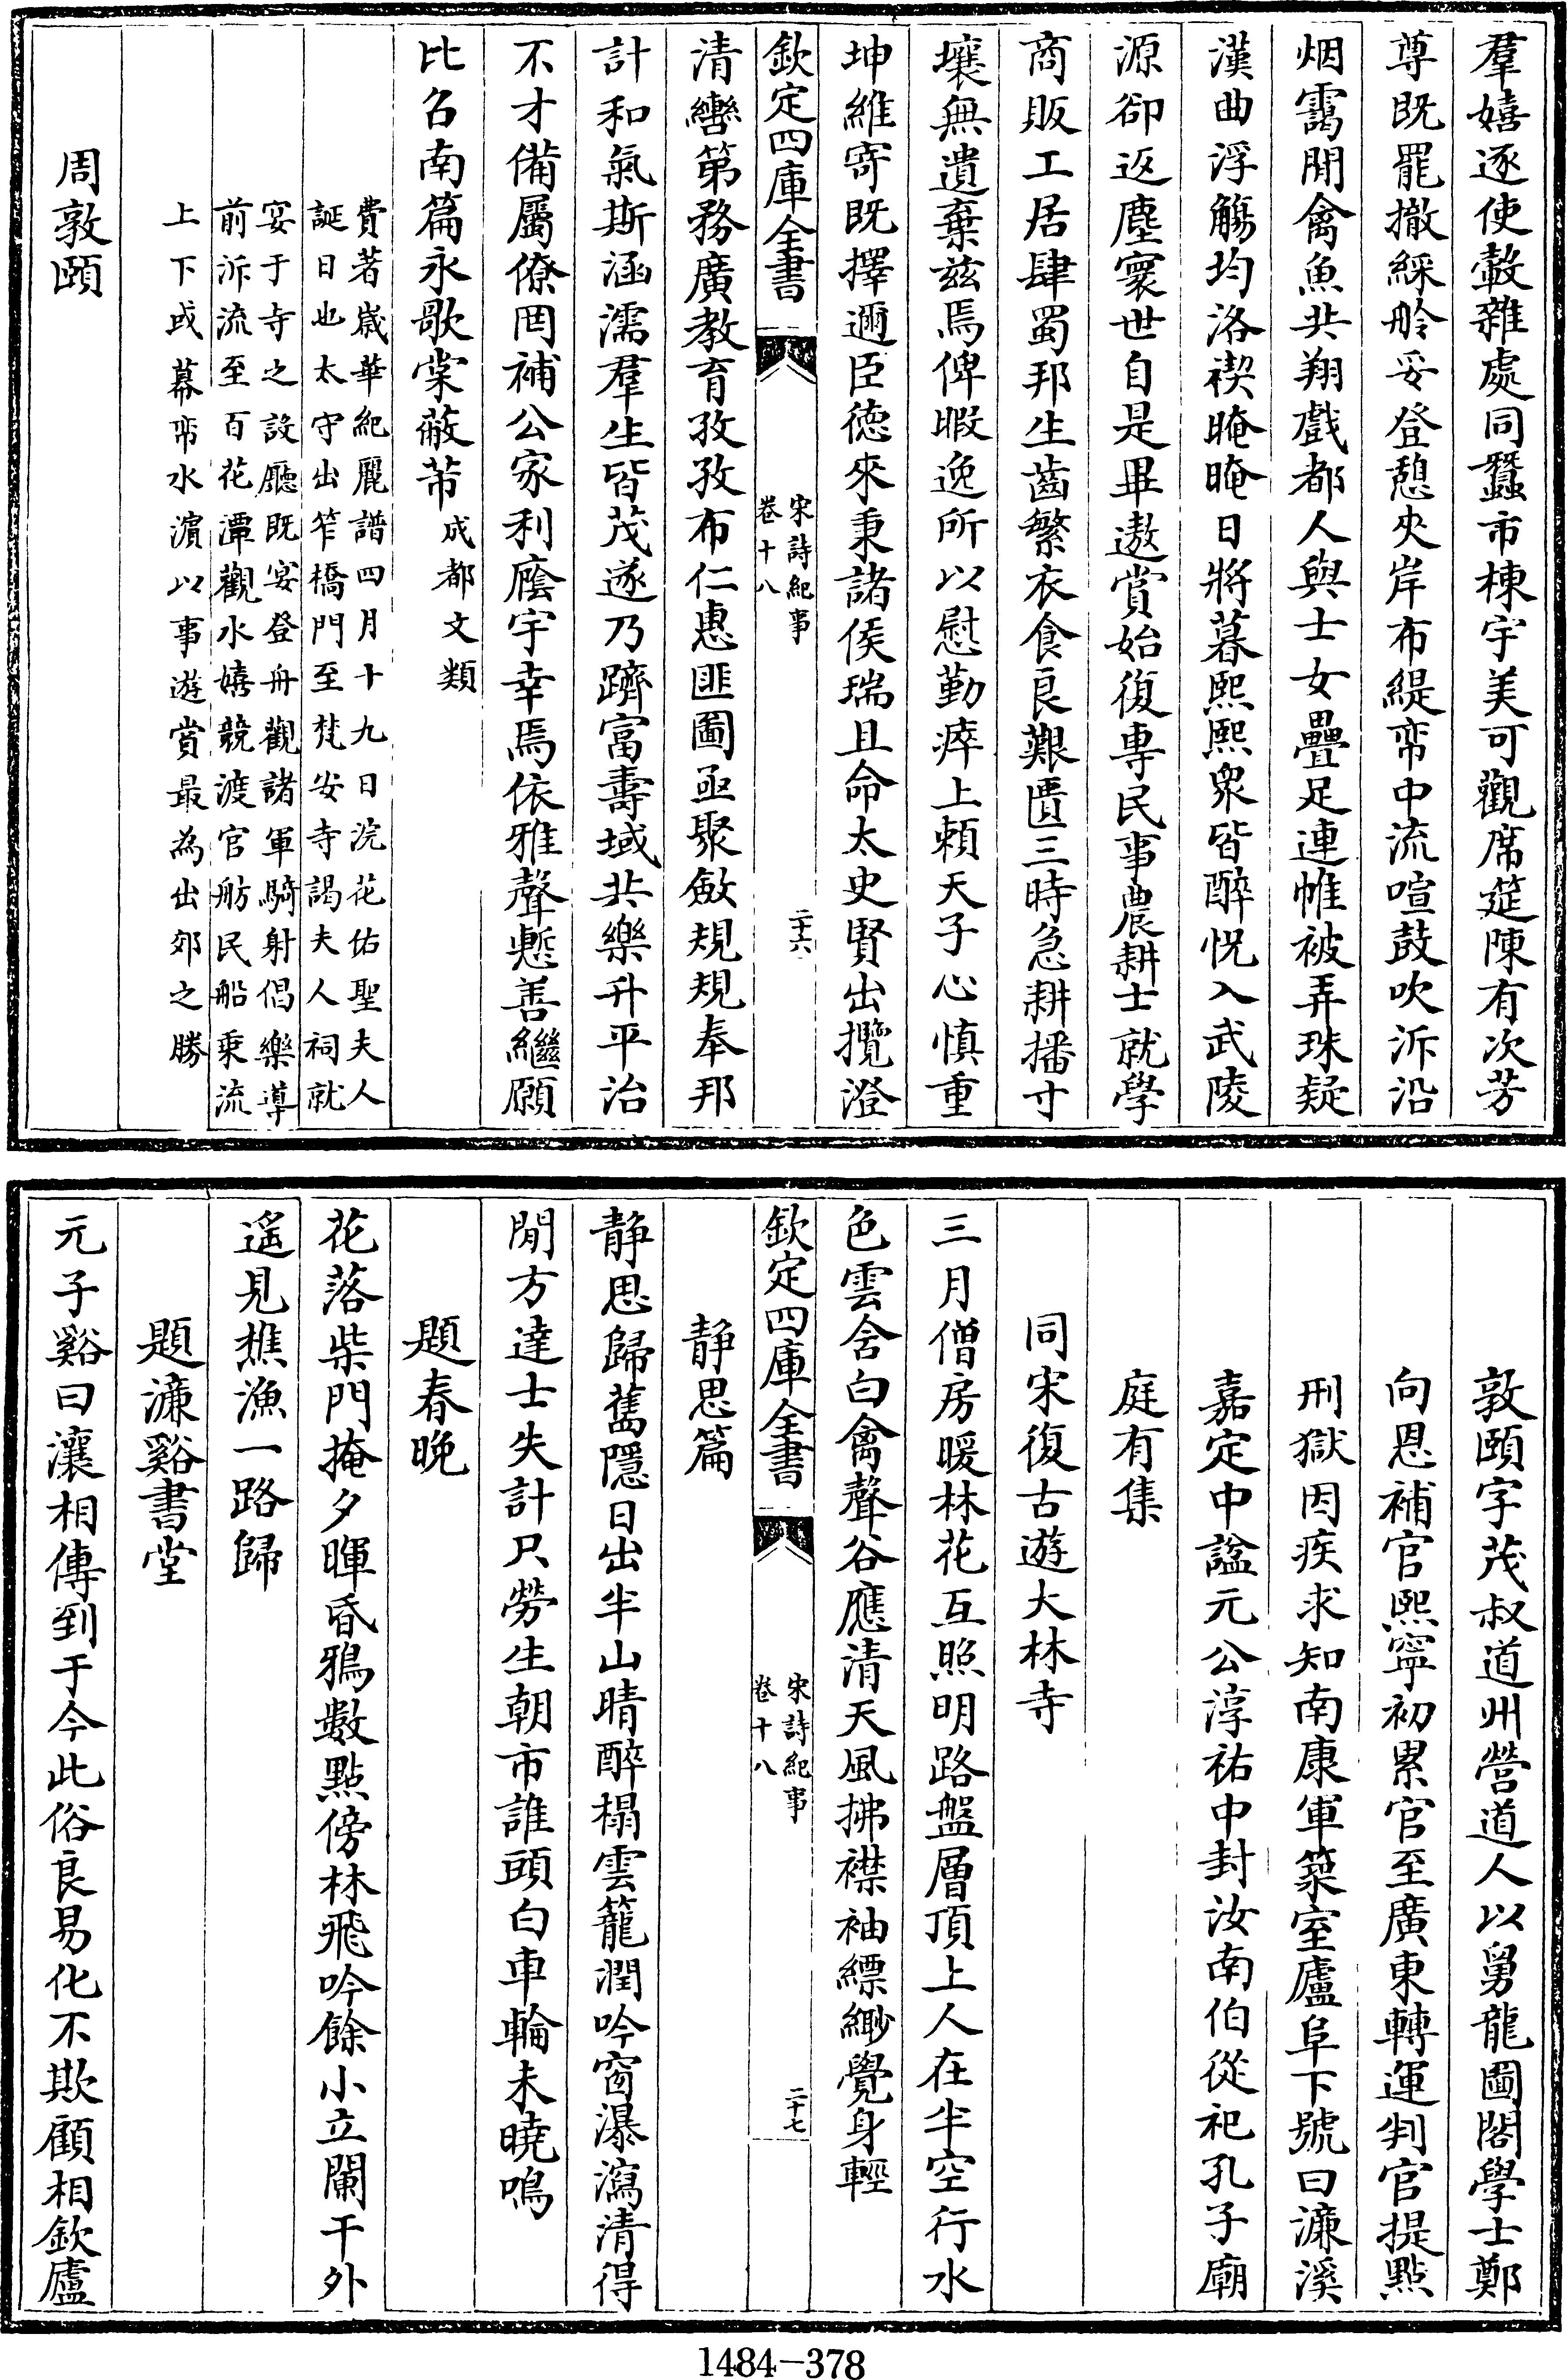 羣嬉逐使轂雜處同蠶市棟宇美可觀席筵陳有次芳
尊既罷撤綵舲妥登憩夾岸布緹帟中流喧鼓吹泝沿
烟靄間禽魚共翔戲都人與士女疊足連帷被弄珠疑
漢曲浮觴均洛禊晻晻日將暮熙熙衆皆醉怳入武陵
源卻返塵寰世自是畢遨賞始復專民事農耕士就學
商販工居肆蜀邦生齒繁衣食良艱匱三時急耕播寸
壤無遺棄兹焉俾暇逸所以慰勤瘁上頼天子心慎重
坤維寄既擇邇臣德來秉諸侯瑞且命太史賢出攬澄
欽定四庫全書
宋詩紀事
卷十八
二十六
清轡第務廣教育孜孜布仁惠匪圖亟聚斂規規奉邦
計和氣斯涵濡羣生皆茂遂乃躋富壽域共樂升平治
不才備屬僚罔補公家利廕宇幸焉依雅聲慙善繼願
比名南篇永歌棠蔽芾成都文類
費著嵗華紀麗譜四月十九日浣花佑聖夫人
誕日也太守出笮橋門至梵安寺謁夫人祠就
宴于寺之設廳既宴登舟觀諸軍騎射倡樂導
前泝流至百花潭觀水嬉競渡官舫民船乘流
上下或幕帟水濵以事遊賞最為出郊之勝
周敦頤
敦頤字茂叔道州營道人以舅龍圖閣學士鄭
向恩補官熙寧初累官至廣東轉運判官提點
刑獄因疾求知南康軍築室廬阜下號曰濂溪
嘉定中諡元公淳祐中封汝南伯從祀孔子廟
庭有集
同宋復古遊大林寺
三月僧房暖林花互照明路盤層頂上人在半空行水
色雲含白禽聲谷應清天風拂襟袖縹緲覺身輕
欽定四庫全書
宋詩紀事
卷十八
二十七
静思篇
静思歸舊隠日出半山晴醉榻雲籠潤吟窗瀑瀉清得
閒方達士失計只勞生朝市誰頭白車輪未曉鳴
題春晚
花落柴門掩夕暉昏鴉數點傍林飛吟餘小立闌干外
遥見樵漁一路歸
題濂谿書堂
元子谿曰瀼相傳到于今此俗良易化不欺顧相欽廬
1484-378